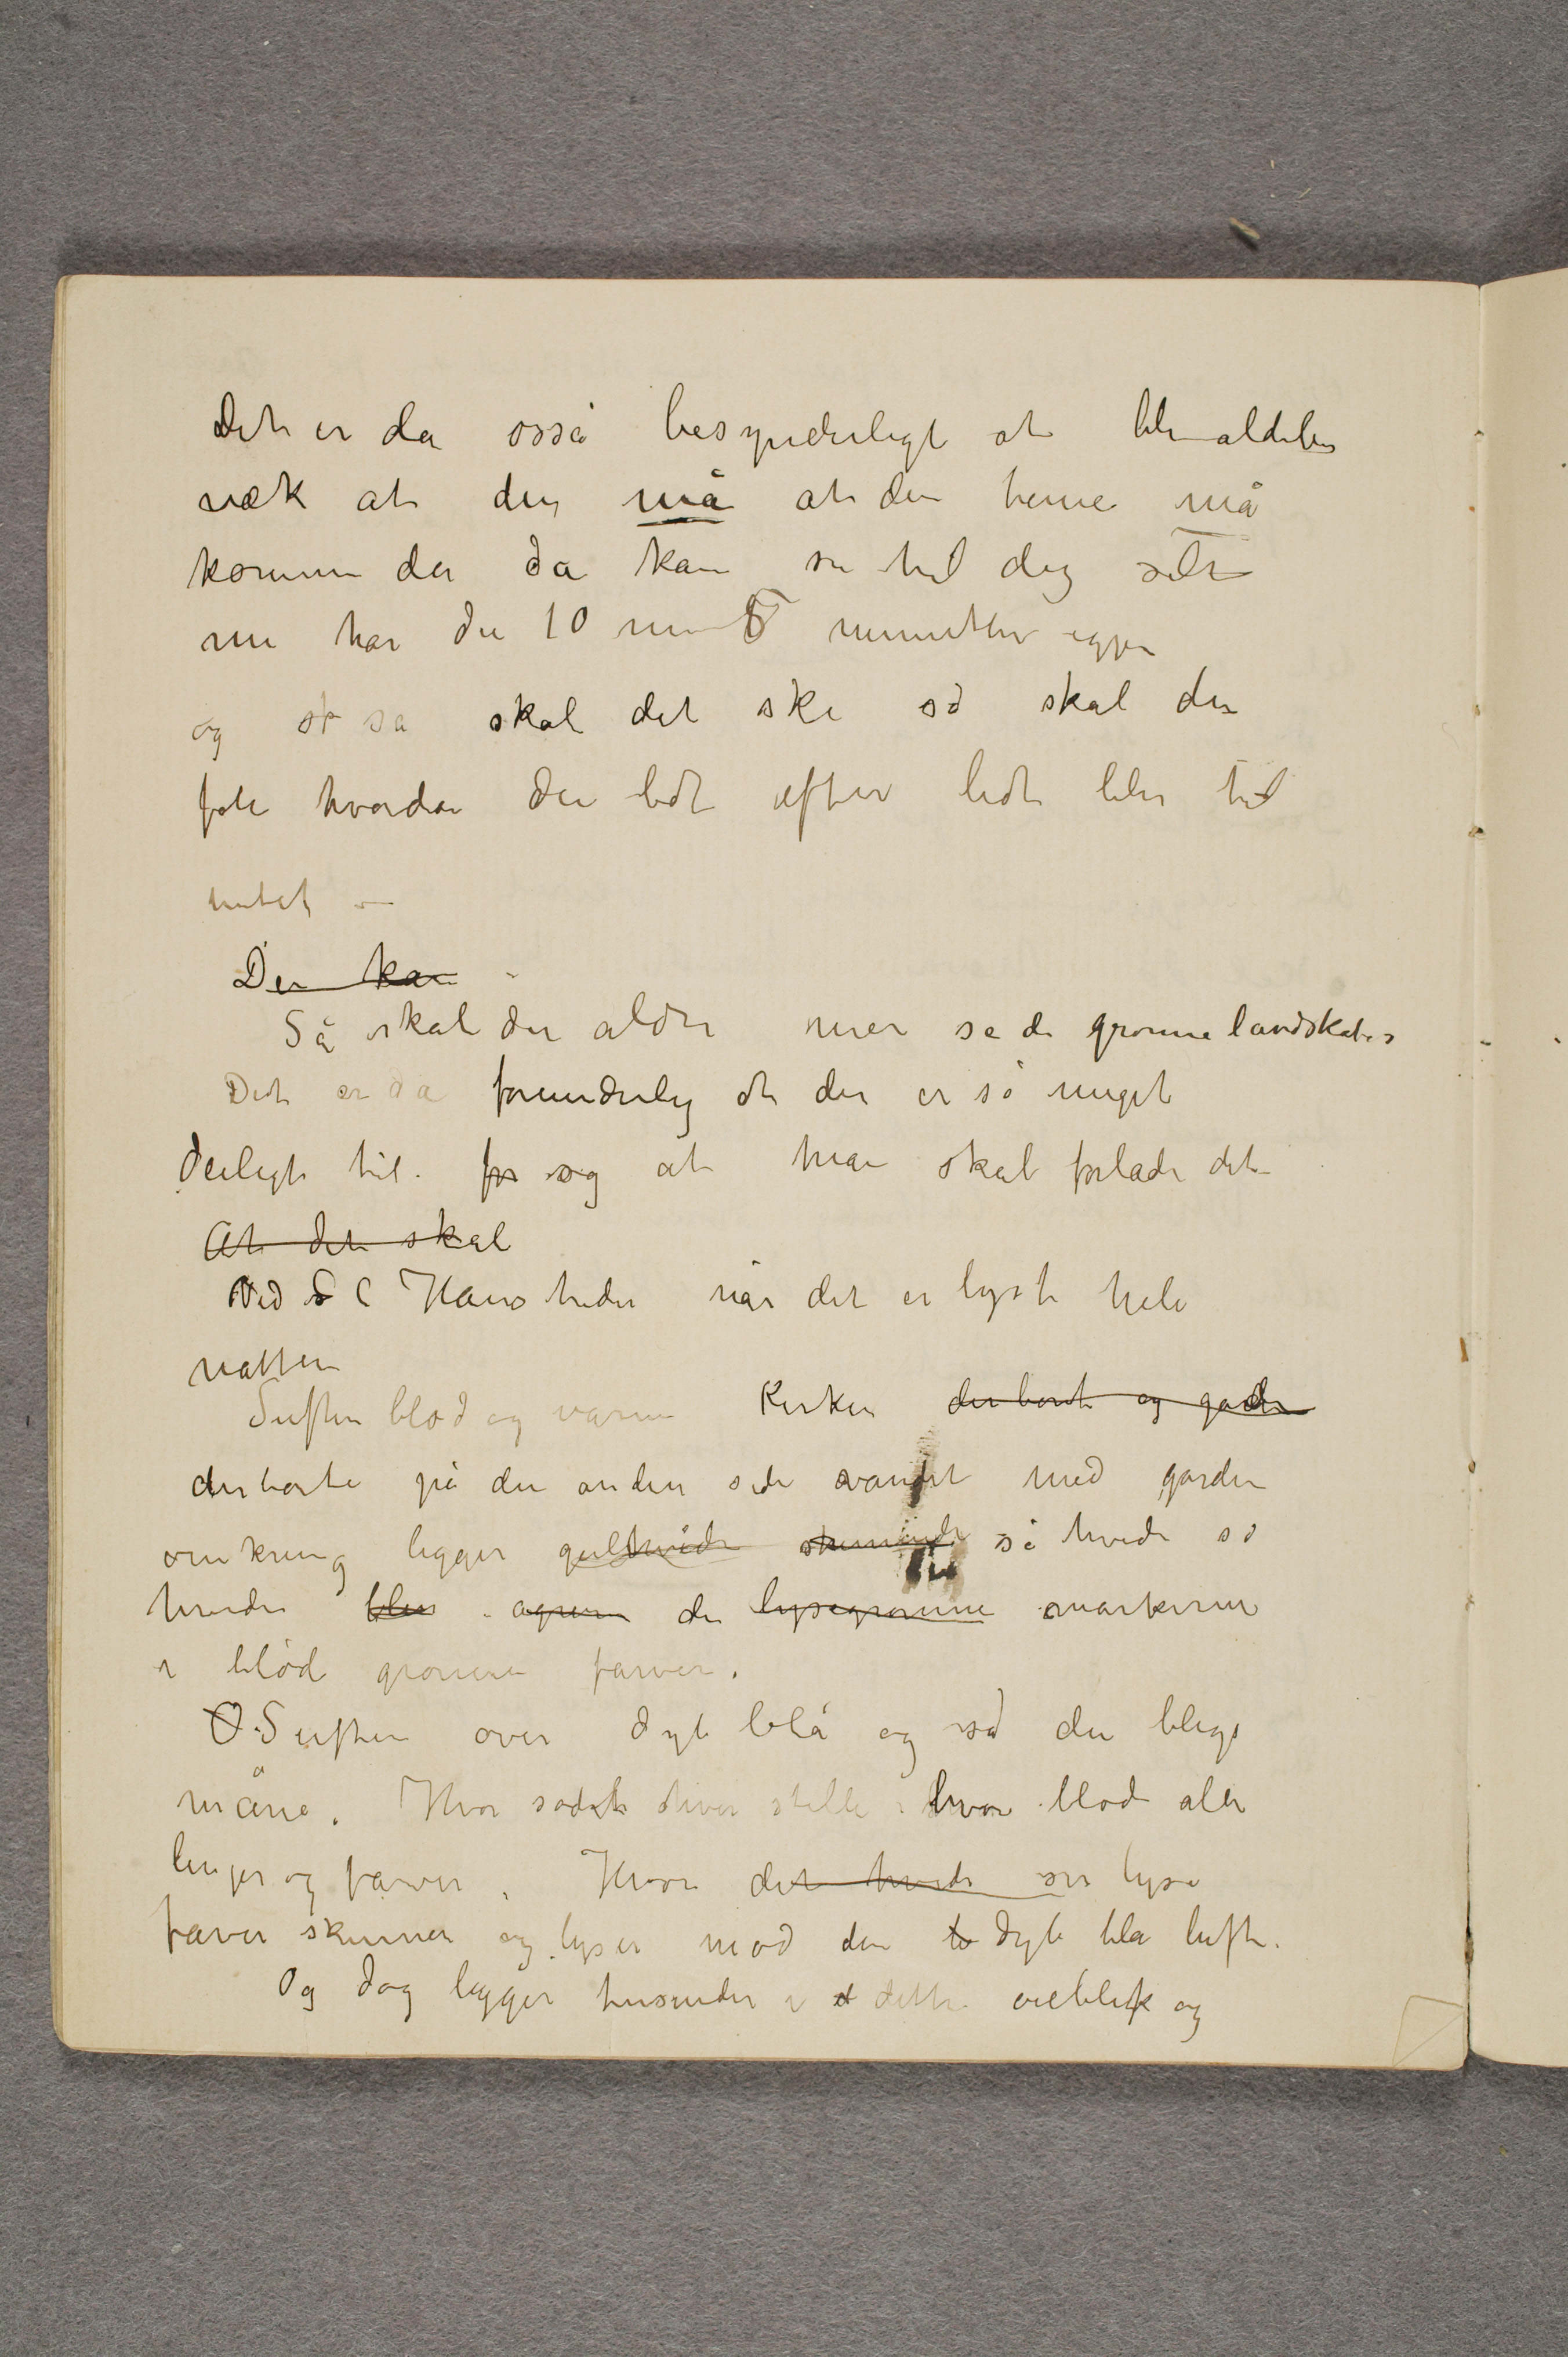 Det er da osså besynderligt at bli aldeles
væk at den må at den time må
komme da da kan si til dig selv
nu har du 10 5 minutter igjen
og så skal det ske så skal du
føle hvordan du lidt efter lidt blir til
intet –
Der kan
Så skal du aldri mer se de grønne landskaber
Det er da forunderlig at der er så meget
deiligt til. for og at man skal forlade det
At det skal
Ved St Hans tider når det er lyst hele
natten
Luften blød og varm Kirken derborte og gården
derborte på den anden side vandet med gården
omkring ligger gulhvide skinnende så hvide så
hvide blir agrene de lysegrønne markerne
i blød grønne farver.
O Luften over dyb blå og så den blege
måne. Hvor sødt hvor stille hvor blød alle
linjer og farver. Hvor det hvide ser lyse
farver skinner og lyser mod den dybe blå luft.
Og dog ligger tusinder i dette øieblik og